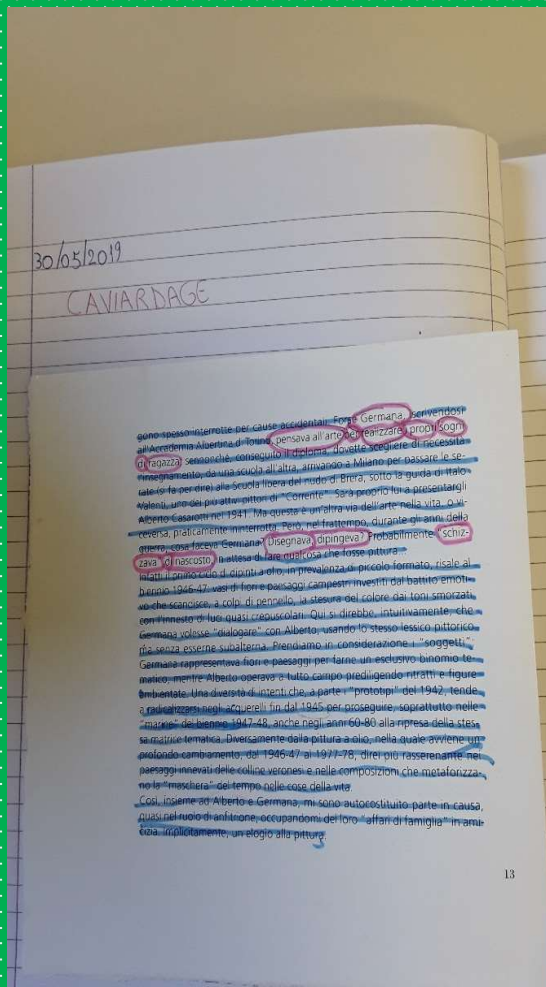 30/05/2019
CAVIARDAGE
gono spesso interrotte per cause accidentali. Forse Germana, iscrivendosi
all'Accademia Albertina di Torino, pensava all'arte per realizzare i propri sogni
di ragazza, sennonché, conseguito il diploma, dovette scegliere di necessità
l'insegnamento, da una scuola all'altra, arrivando a Milano per passare le se-
rate (si fa per dire) alla Scuola libera del nudo di Brera, sotto la guida di Italo
Valenti, uno dei più attivi pittori di "Corrente". Sarà proprio lui a presentargli
Alberto Casarotti nel 1941. Ma questa è un'altra via dell'arte nella vita, o vi-
ceversa, praticamente ininterrotta. Però, nel frattempo, durante gli anni della
guerra, cosa faceva Germana? Disegnava, dipingeva? Probabilmente "schiz-
zava" di nascosto in attesa di fare qualcosa che fosse pittura.
Infatti il primo ciclo di dipinti a olio, in prevalenza di piccolo formato, risale al
biennio 1946-47: vasi di fiori e paesaggi campestri investiti dal battito emoti-
vo che scandisce, a colpi di pennello, la stesura del colore dai toni smorzati,
con l'innesto di luci quasi crepuscolari. Qui si direbbe, intuitivamente, che
Germana volesse "dialogare" con Alberto, usando lo stesso lessico pittorico,
ma senza esserne subalterna. Prendiamo in considerazione i "soggetti".
Germana rappresentava fiori e paesaggi per farne un esclusivo binomio te-
matico, mentre Alberto operava a tutto campo prediligendo ritratti e figure
ambientate. Una diversità di intenti che, a parte i "prototipi" del 1942, tende
a radicalizzarsi negli acquerelli fin dal 1945 per proseguire, soprattutto nelle
"marine" del biennio 1947-48, anche negli anni 60-80 alla ripresa della stes-
sa matrice tematica. Diversamente dalla pittura a olio, nella quale avviene un
profondo cambiamento, dal 1946-47 al 1977-78, direi più rasserenante nei
paesaggi innevati delle colline veronesi e nelle composizioni che metaforizza-
no la "maschera" del tempo nelle cose della vita.
Così, insieme ad Alberto e Germana, mi sono autocostituito parte in causa,
quasi nel ruolo di anfitrione, occupandomi dei loro "affari di famiglia" in ami-
cizia. Implicitamente, un elogio alla pittura.
13